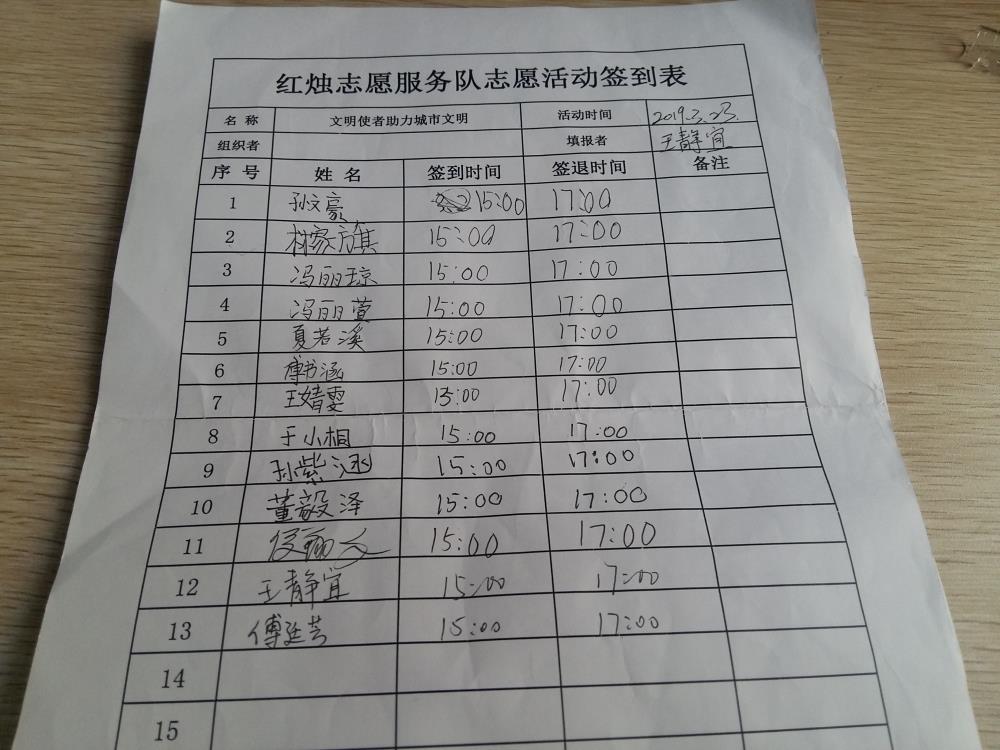 红烛志愿服务队志愿活动签到表
名 称 文明使者助力城市文明 活动时间 2019.3.23.
组织者 填报者 王静宜
序 号 姓 名 签到时间 签退时间 备注
1 孙文豪 15:00 17:00
2 林家旗 15:00 17:00
3 冯丽琼 15:00 17:00
4 冯丽萱 15:00 17:00
5 夏若溪 15:00 17:00
6 傅书涵 15:00 17:00
7 王婧雯 15:00 17:00
8 于小桐 15:00 17:00
9 孙紫涵 15:00 17:00
10 董毅泽 15:00 17:00
11 15:00 17:00
12 王静宜 15:00 17:00
13 傅延芸 15:00 17:00
14
15